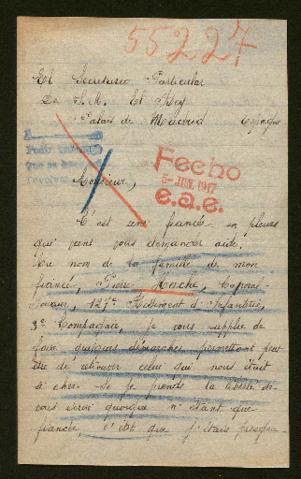 55227
El Secretario Particular
De S. M. El Rey
Palais de Madrid Espagne
Fecho
5-JUN. 1917
e.a.e.
Monsieur,
C'est une fiancée en pleurs
qui vient vous demander aide.
Au nom de la famille de mon
fiancé, Pierre
127e Régiment d'Infanterie,
3e Compagnie, je vous supplie de
faire quelques démarches permettant peut
être de retrouver celui qui nous était
si cher. Si je prends la liberté de
vous écrire quoique n'étant que
fiancée, c'est que j'étais presque